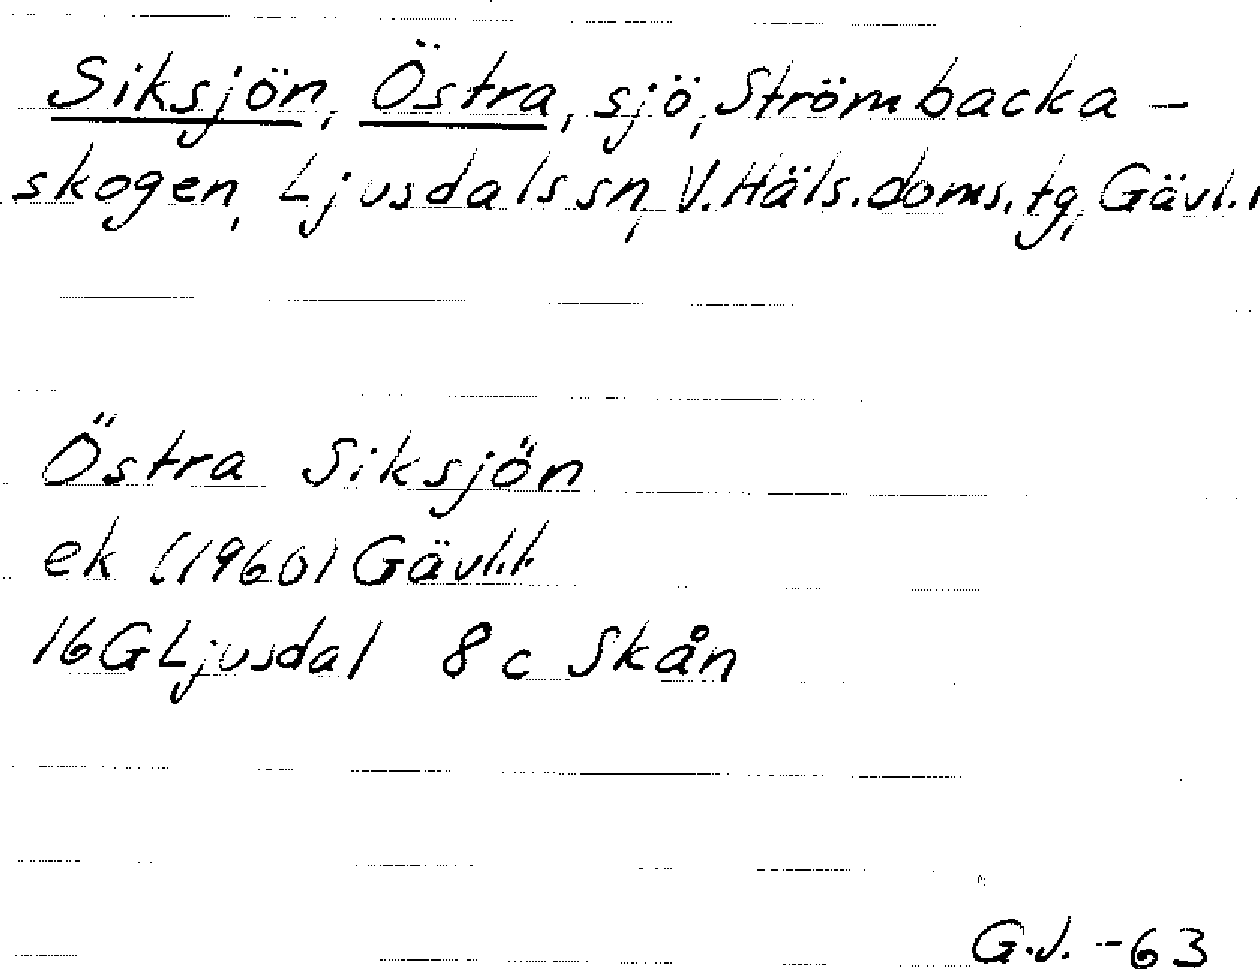 Siksjön, Östra, sjö, Strömbacka-
skogen, Ljusdals sn, V. Häls. doms. tg, Gävl. l
Östra Siksjön
ek (1960) Gävl.l.
16G Ljusdal 8c Skån
G.J. -63